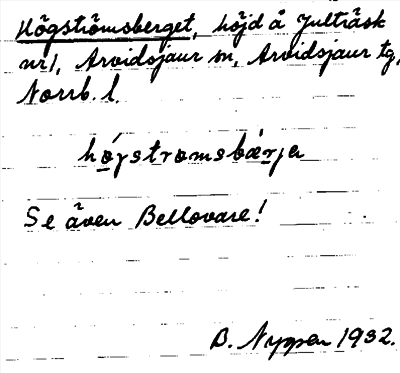 Högströmsberget, höjd å Julträsk
nr 1, Arvidsjaur sn, Arvidsjaur tg,
Norrb. l.
hǫ́gstromsbærja
Se även Bellovare!
B. Nygren 1932.